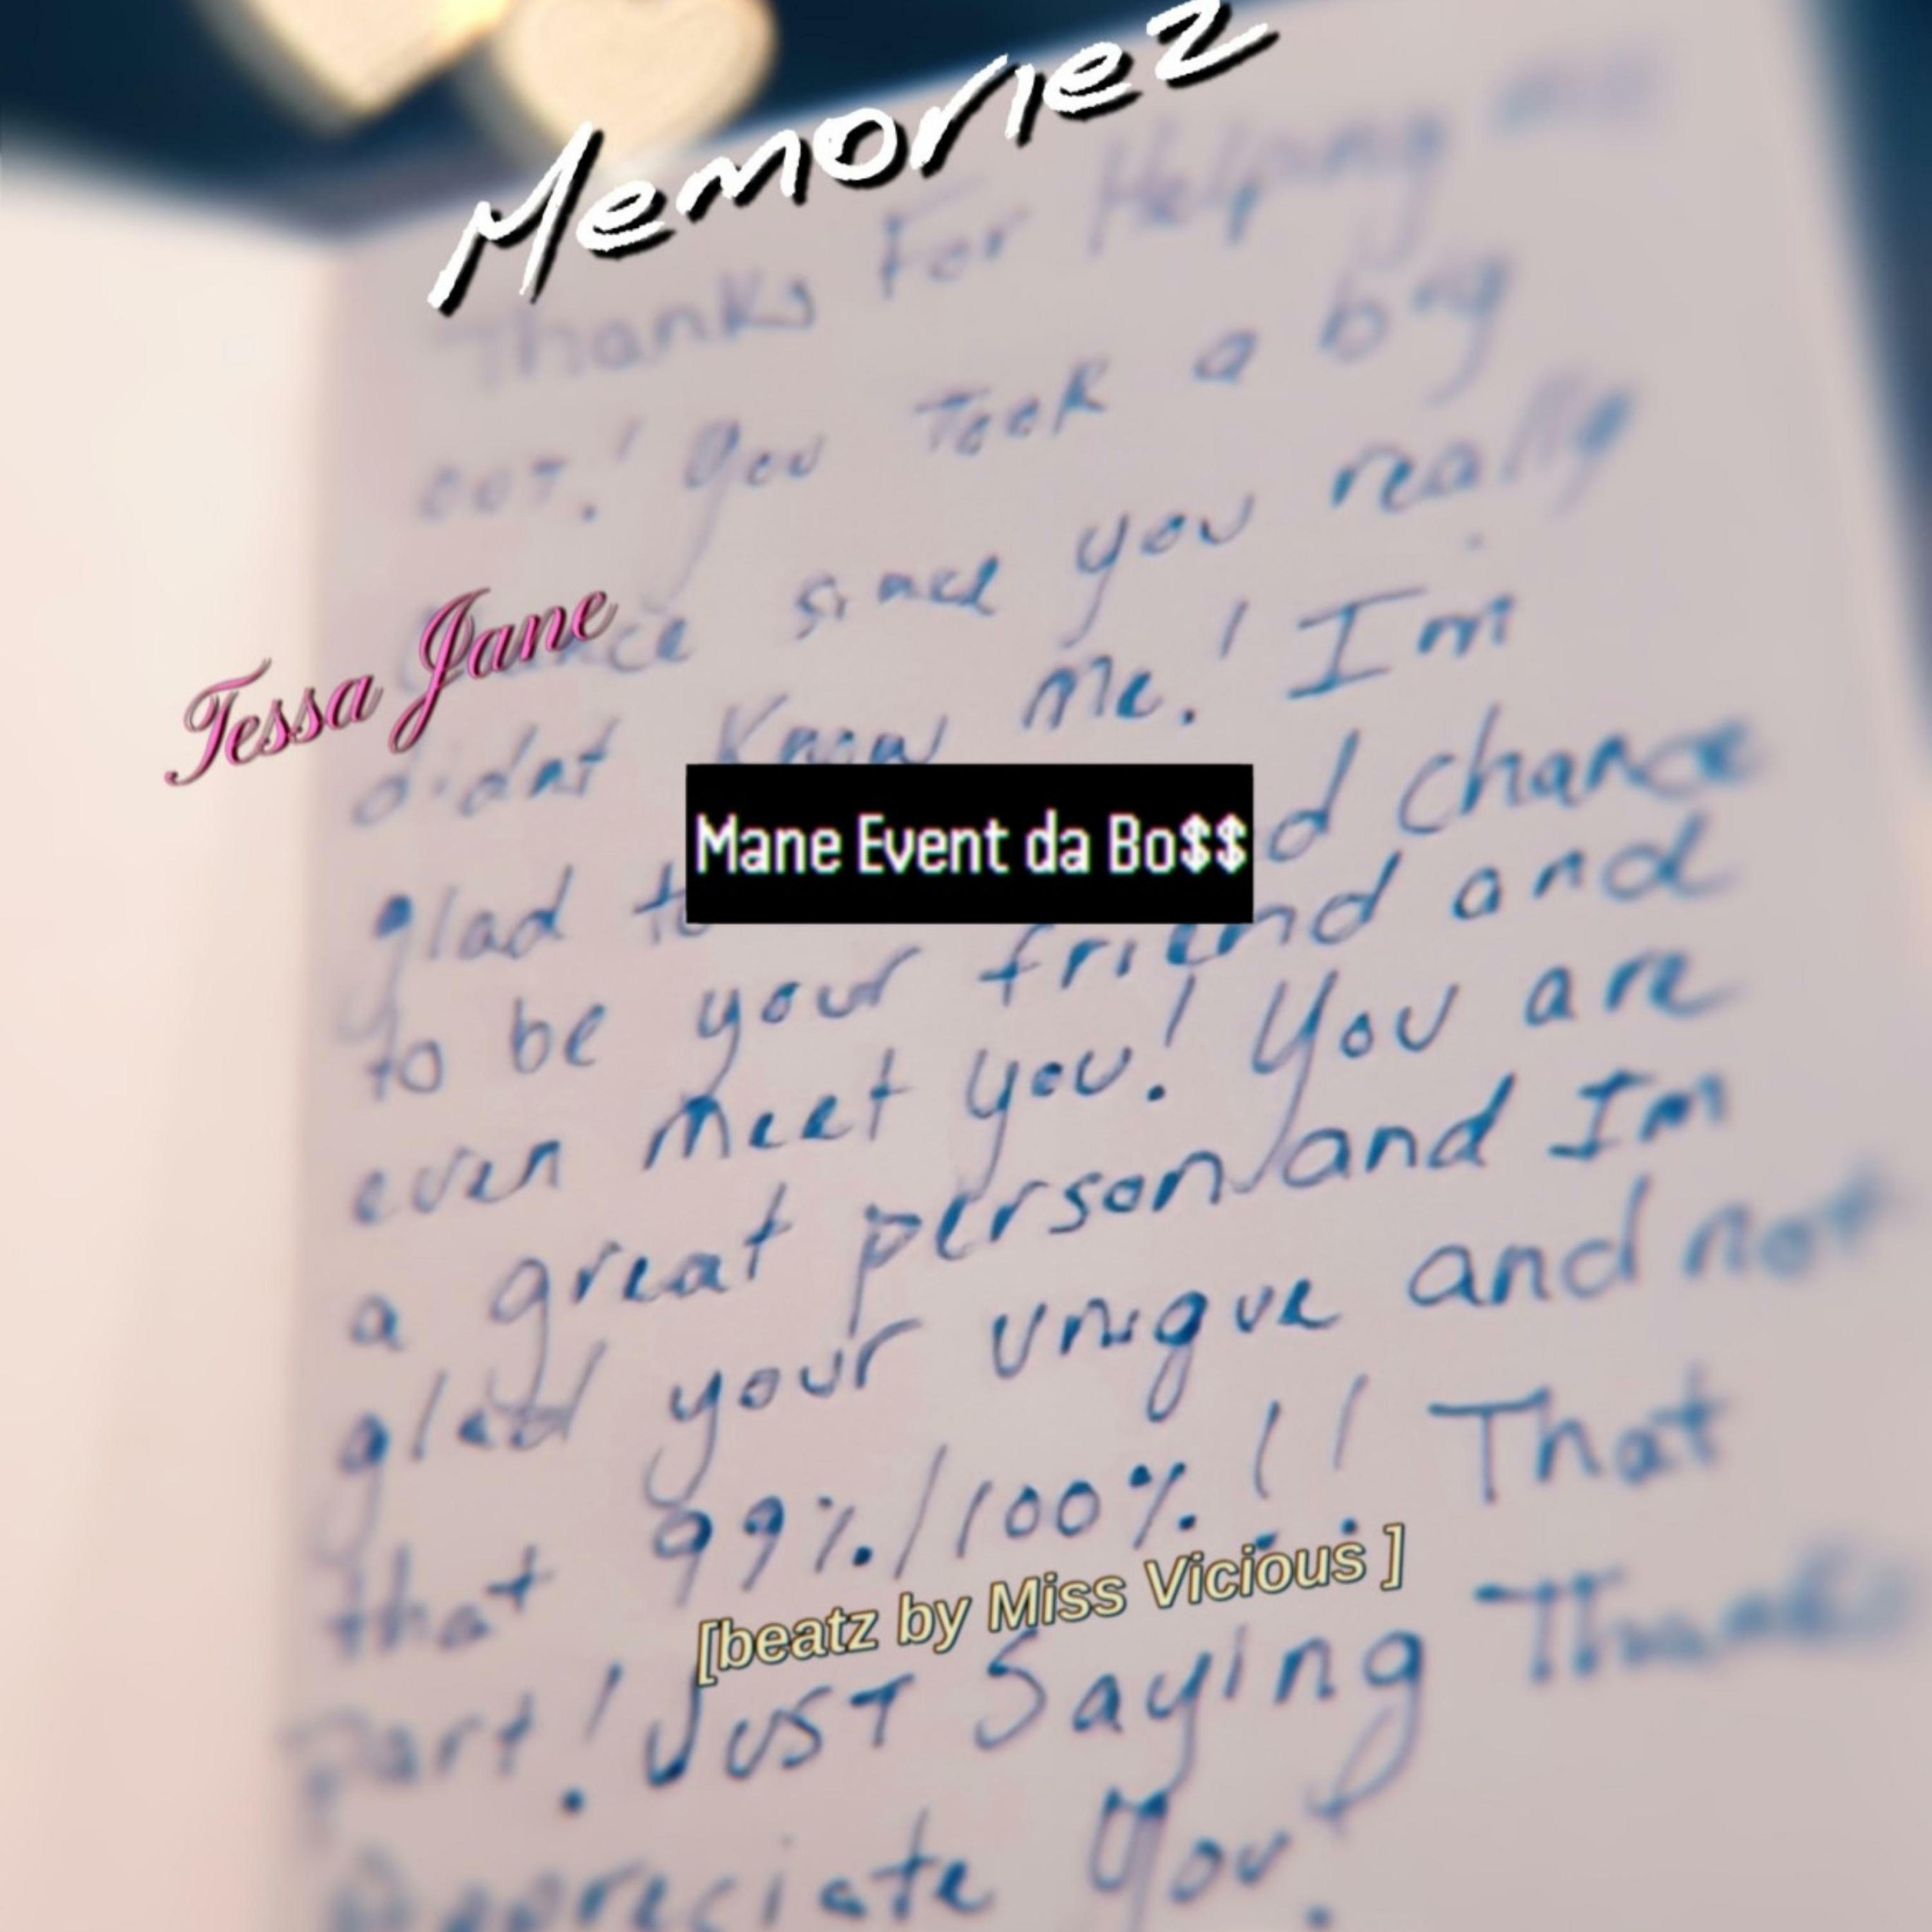 Memoriez
Thanks For Helping me
out! You Took a big
since you really
Tessa Jane
didnt Know me! Im
Mane Event da Bo$$
glad chance
to be your friend and
even meet you! You are
a great person and Im
glad your unique and not
that 99%/100%!! That
[beatz by Miss Vicious ]
part! Just Saying Thanks
Appreciate You!